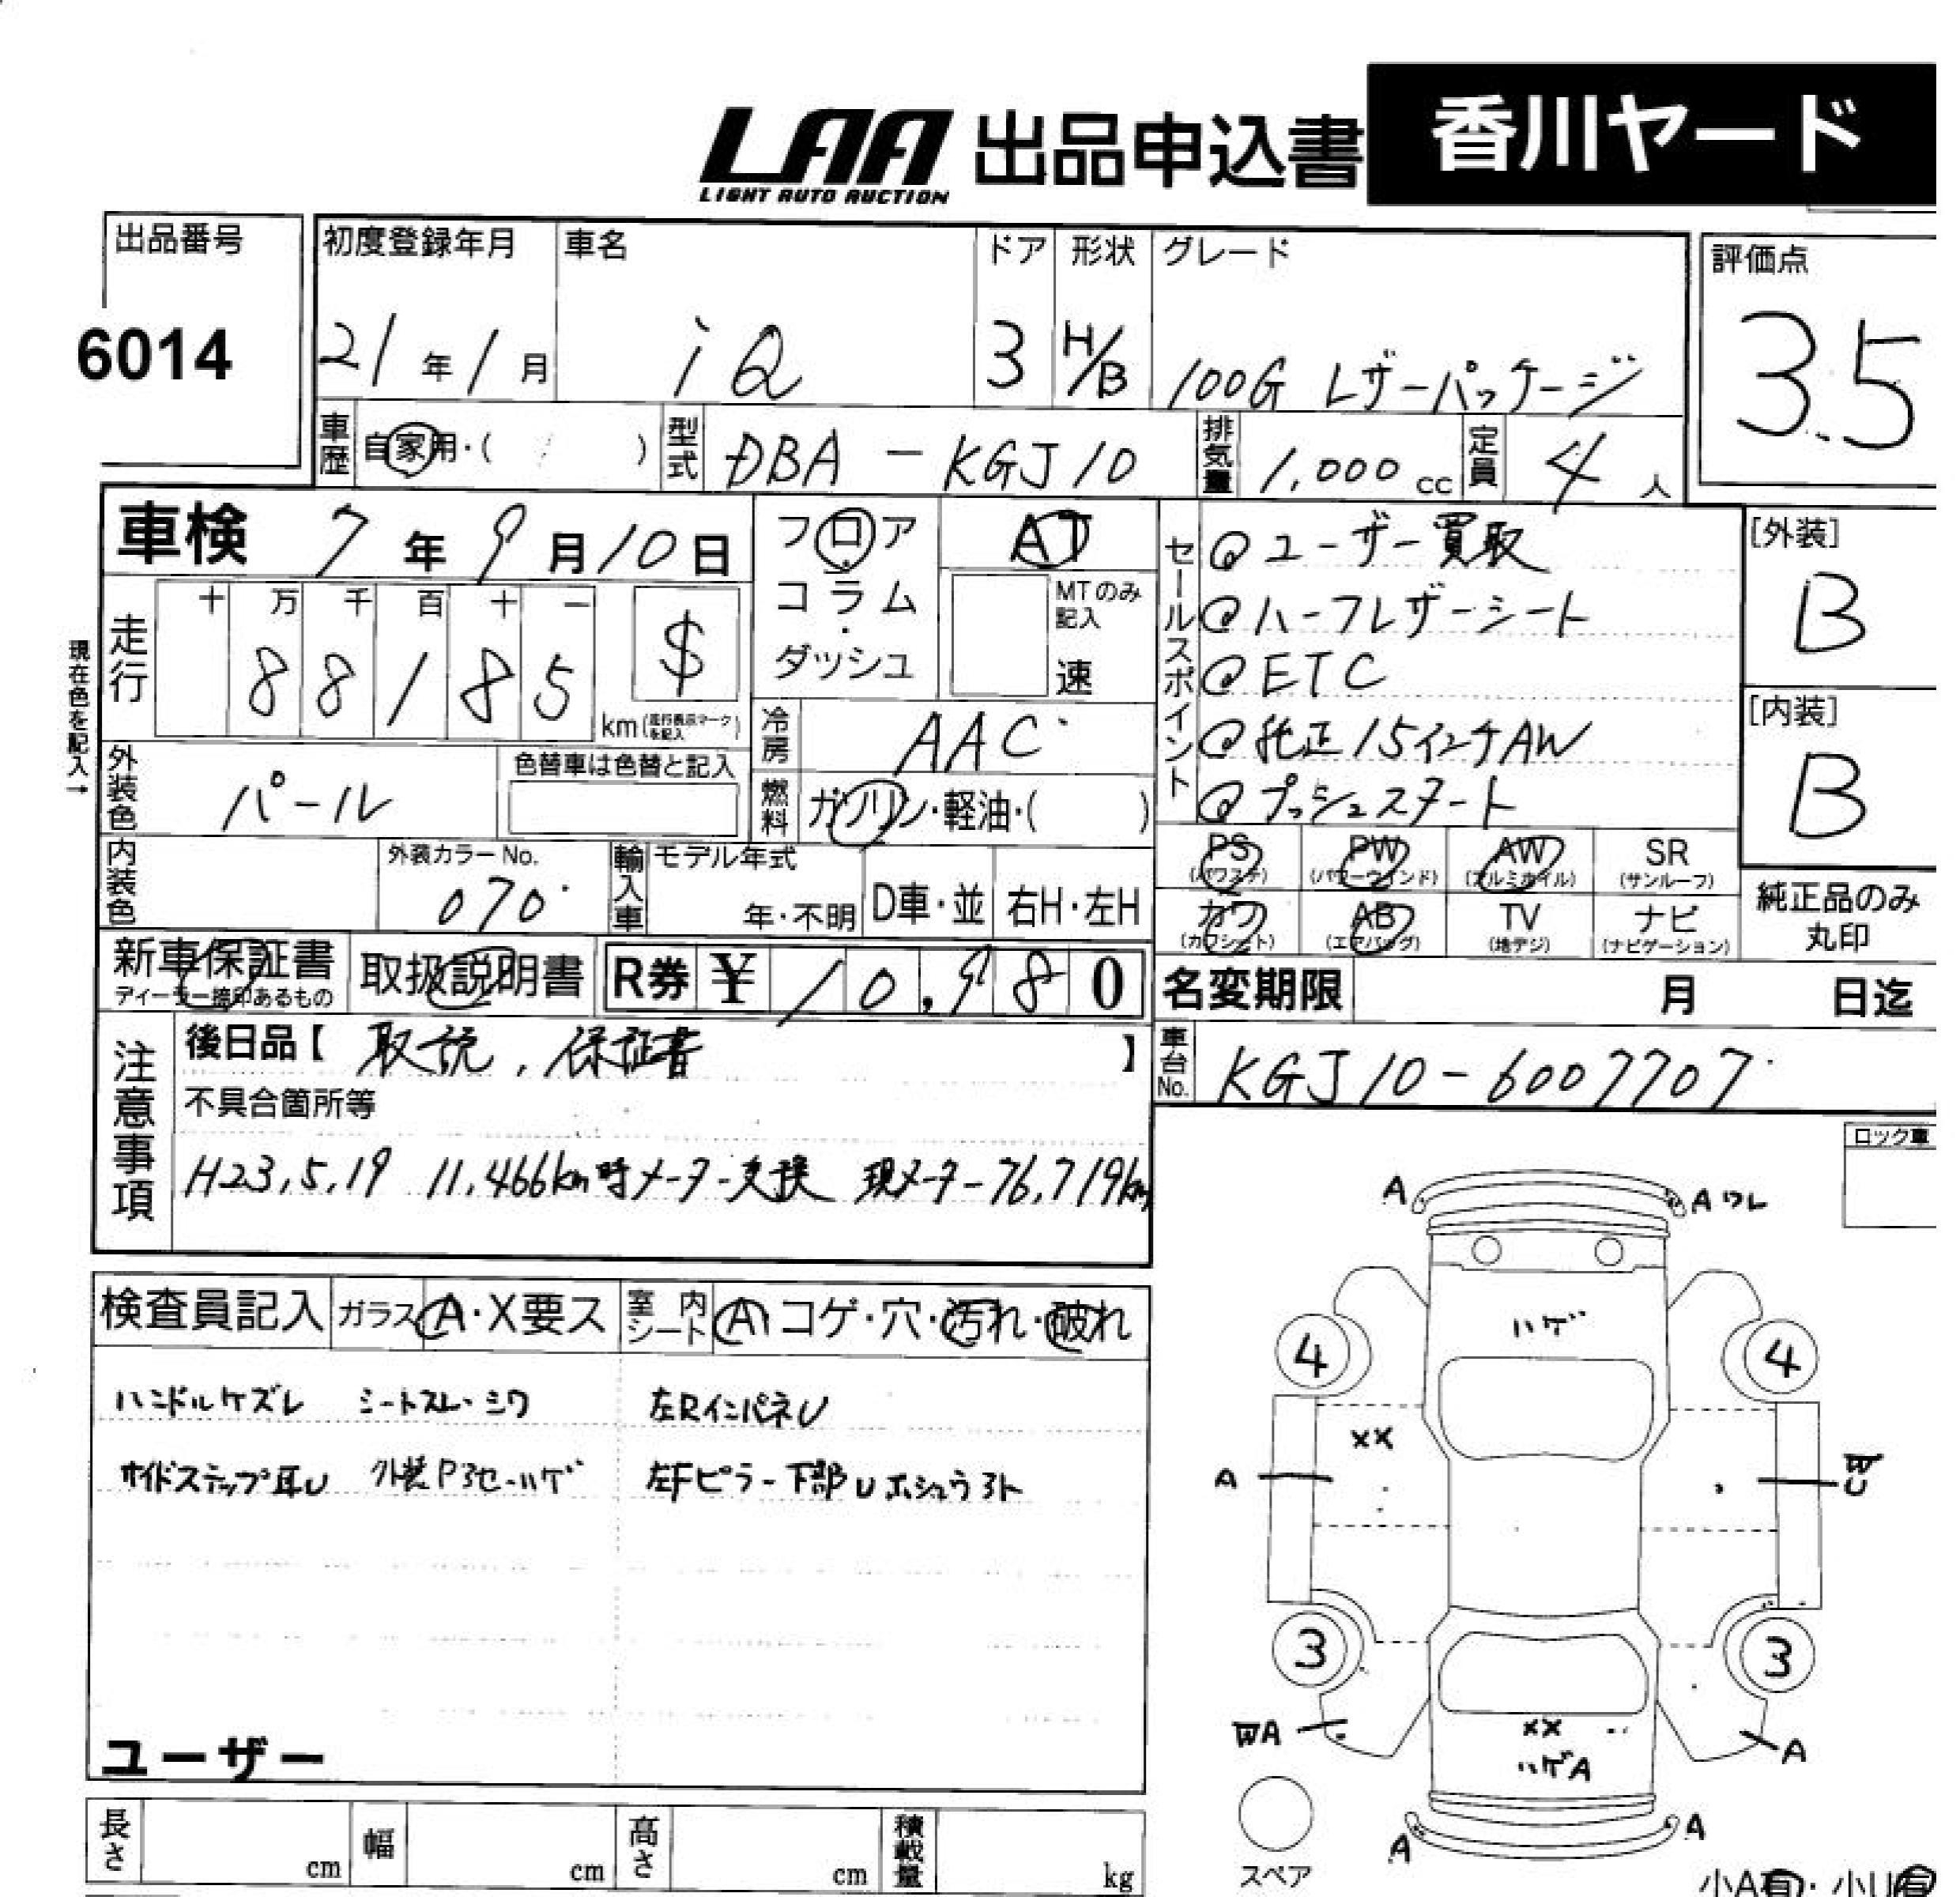 LAA 出品申込書 香川ヤード
LIGHT AUTO AUCTION
出品番号
6014
初度登録年月 車名 ドア 形状 グレード
21年1月 iQ 3 H/B 100G レザーパッケージ
評価点
3.5
車歴 自家用・( ) 型式 DBA-KGJ10 排気量 1,000cc 定員 4人
車検 7年9月10日
フロア・コラム・ダッシュ
AT
MTのみ記入
速
現在色を記入→
走行 十万千百十一
88185 km (走行表示マークを記入) $
外装色 パール
色替車は色替と記入
冷房 AAC
燃料 ガソリン・軽油・( )
内装色
外装カラーNo.
070
輸入車 モデル年式
年・不明 D車・並 右H・左H
セールスポイント
@ユーザー買取
@ハーフレザーシート
@ETC
@純正15インチAW
@プッシュスタート
[外装]
B
[内装]
B
PS (パワステ) PW (パワーウインド) AW (アルミホイル) SR (サンルーフ)
カワ (カワシート) AB (エアバッグ) TV (地デジ) ナビ (ナビゲーション)
純正品のみ丸印
新車保証書
ディーラー捺印あるもの
取扱説明書
R券 ¥10,980
名変期限 月 日迄
注意事項
後日品【 取説、保証書 】
不具合箇所等
H23.5.19 11,466km時メーター交換 現メーター76,719km
車台No. KGJ10-6007707
ロック車
検査員記入 ガラス A・X要ス 室内シート A コゲ・穴・汚れ・破れ
ハンドルケズレ シートスレ・シワ 左RインパネU
サイドステップ耳U 外装Pヨセ・ハゲ 左Fピラー下部Uホシュウヨト
ユーザー
A A ワレ
ハゲ
4 4
XX
A
U
3 3
WA XX
ハゲA A
A A
スペア
長さ cm 幅 cm 高さ cm 積載量 kg
小A有・小U有